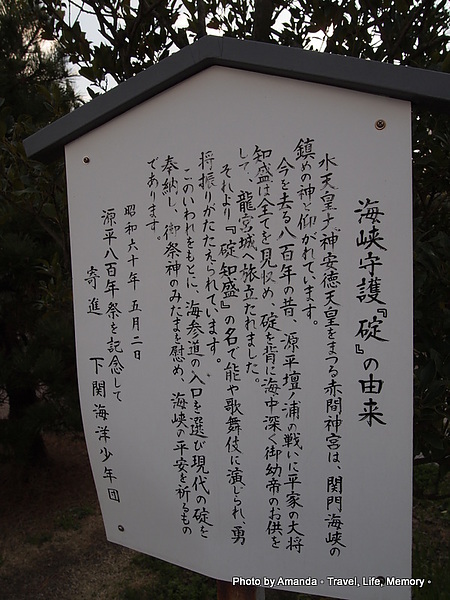 海峡守護『碇』の由来
水天皇大神安徳天皇をまつる赤間神宮は、関門海峡の
鎮めの神と仰がれています。
今を去る八百年の昔、源平壇ノ浦の戦いに平家の大将
知盛は全てを見収め、碇を背に海中深く御幼帝のお供を
して、龍宮城へ旅立たれました。
それより『碇知盛』の名で能や歌舞伎に演じられ、勇
将振りがたたえられています。
このいわれをもとに、海参道の入口を選び現代の碇を
奉納し、御祭神のみたまを慰め、海峡の平安を祈るもの
であります。
昭和六十年五月二日
源平八百年祭を記念して
寄進 下関海洋少年団
Photo by Amanda。Travel, Life, Memory。